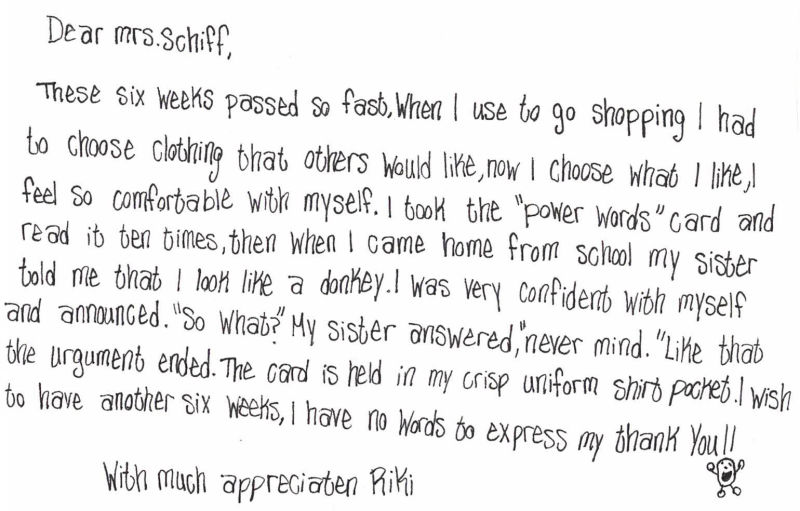 Dear mrs. Schiff,
These six weeks passed so fast, When I use to go shopping I had
to choose clothing that others would like, now I choose what I like, I
feel so comfortable with myself. I took the "power words" card and
read it ten times, then when I came home from school my sister
told me that I look like a donkey. I was very confident with myself
and announced. "So what?" My sister answered, "never mind. "Like that
the urgument ended. The card is held in my crisp uniform shirt pocket. I wish
to have another six weeks, I have no words to express my thank you!!
With much appreciaten Riki